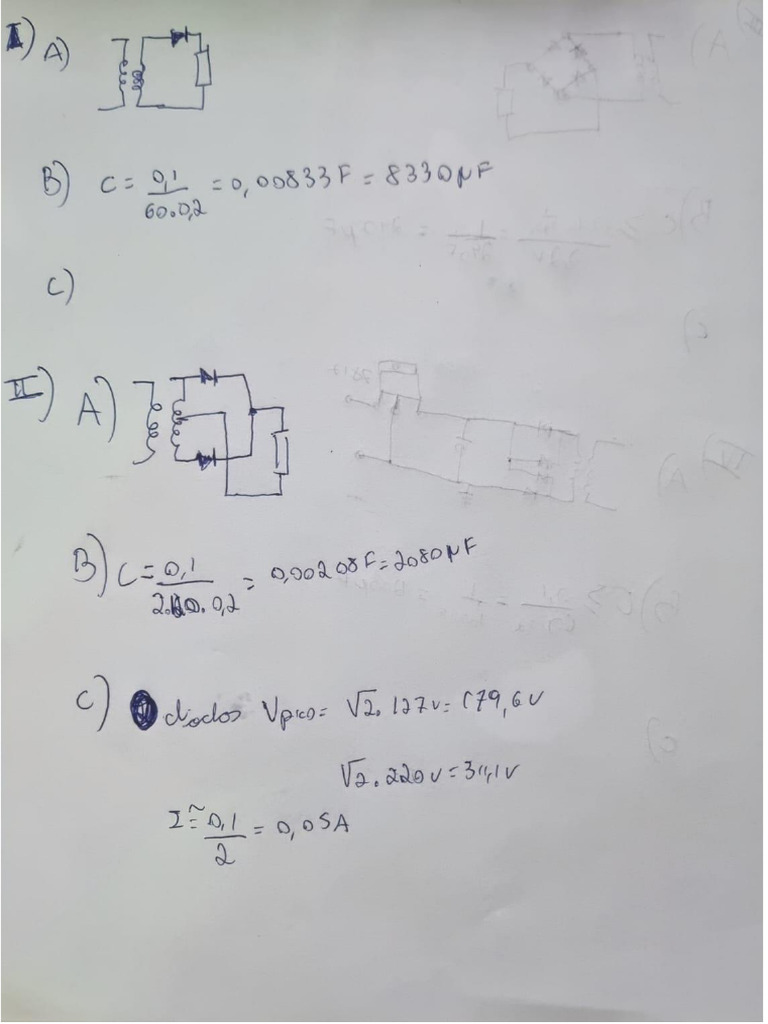 I) A)
B) C = 0,1 / 60.0,2 = 0,00833F = 8330µF
C)
II) A)
B) C = 0,1 / 2.120.0,2 = 0,00208F = 2080µF
C) diodos Vpico = √2. 127v = 179,6v
√2. 220v = 311,1v
I ≅ 0,1 / 2 = 0,05A